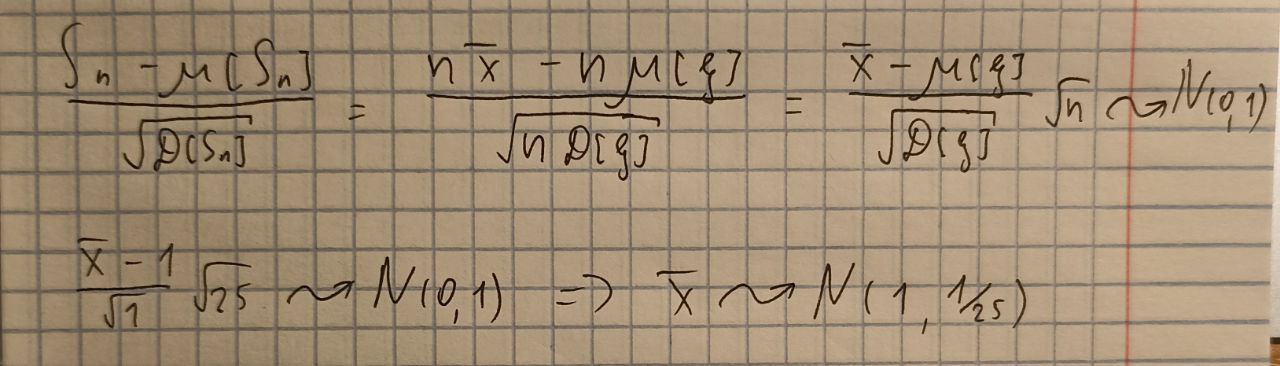 (Sₙ - μ[Sₙ]) / √D[Sₙ] = (n x̄ - n μ[ξ]) / √(n D[ξ]) = (x̄ - μ[ξ]) / √D[ξ] √n ⇝ N(0,1)
(x̄ - 1) / √1 √25 ⇝ N(0,1) => x̄ ⇝ N(1, 1/25)